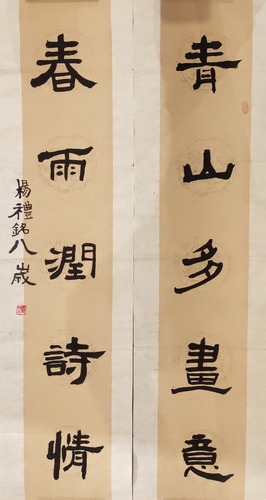 青山多畫意
春雨潤詩情
楊禮銘八歲